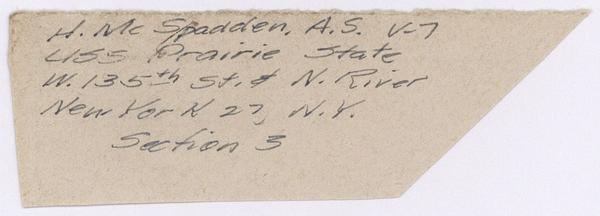 H. Mc Spadden, A.S. V-7
USS Prairie State
W. 135th St. & N. River
New York 27, N.Y.
Section 3